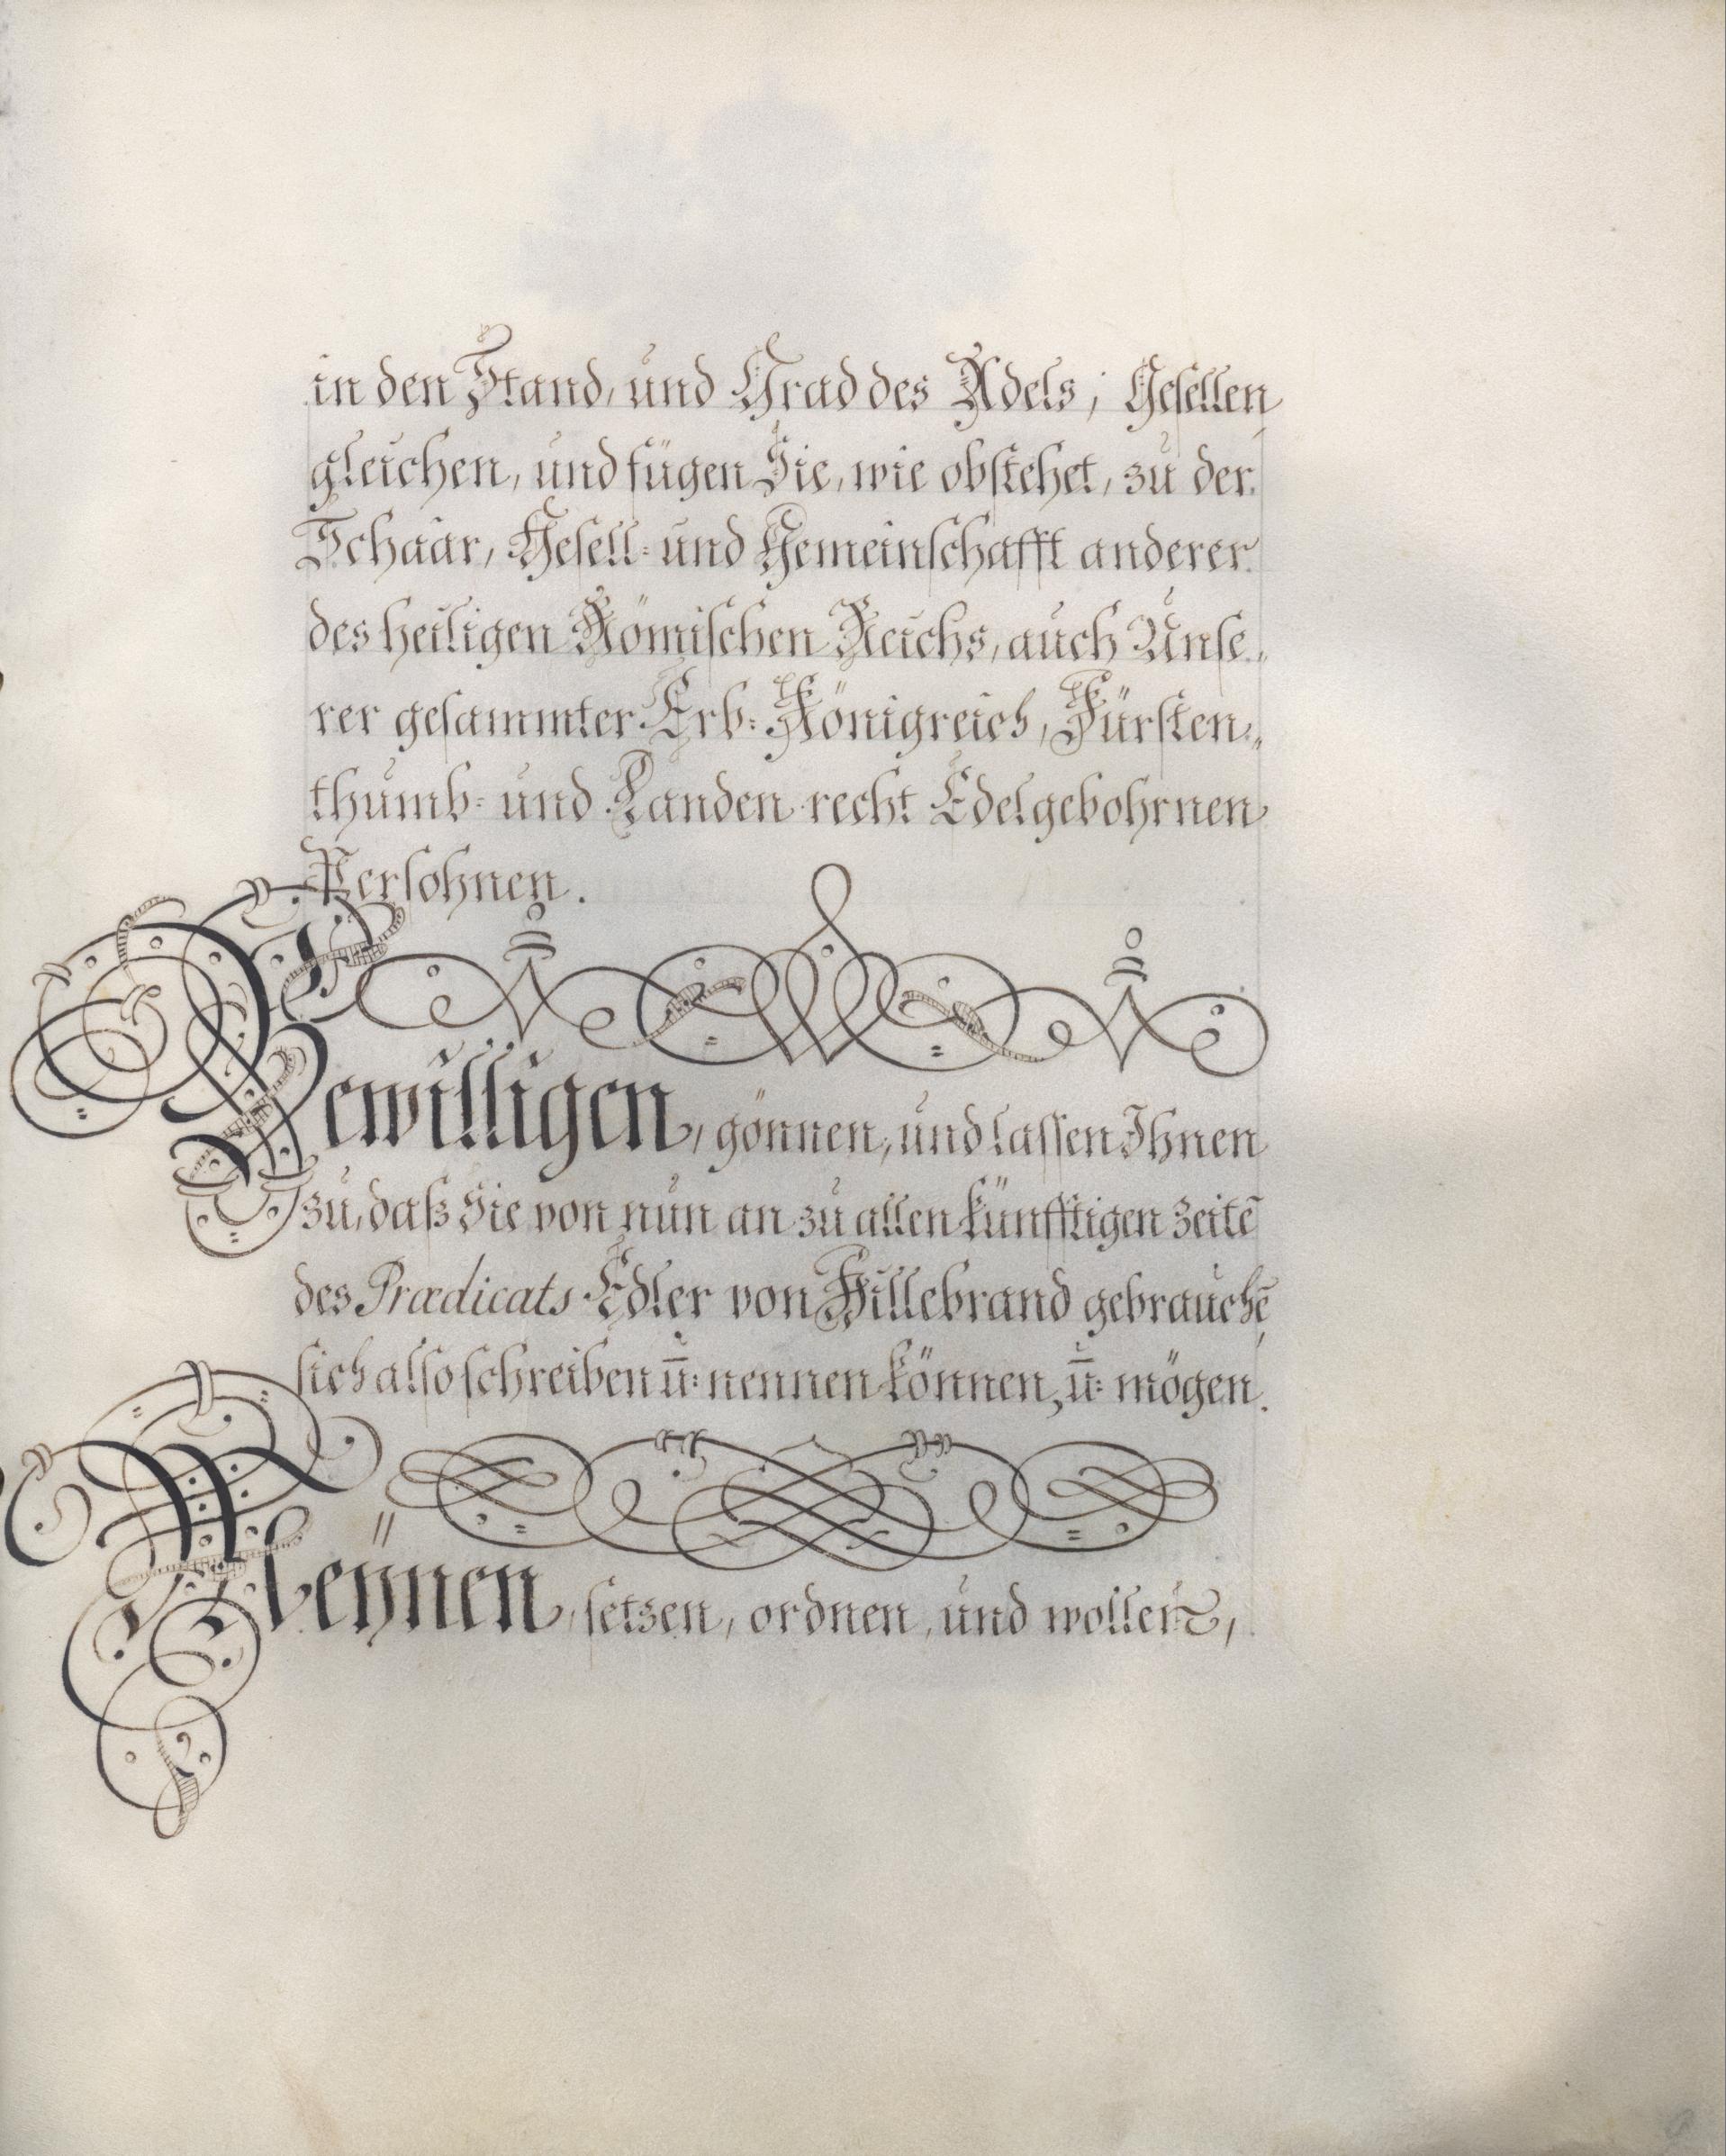 in den Stand, und Grad des Adels, Gesellen,
gleichen, und fügen Sie, wie obstehet, zu der
Schaar, Gesell= und Gemeinschafft anderer
des heiligen Römischen Reichs, auch Unse„
rer gesammter Erb=Königreich, Fürsten„
thumb= und Landen recht Edelgebohrnen
Persohnen.
Bewilligen, gönnen, und lassen Ihnen
zu, daß Sie von nun an zu allen künfftigen Zeitē
des Prædicats Edler von Hillebrand gebrauchē,
sich also schreiben ū: nennen können, ū: mögen.
Meÿnen, setzen, ordnen, und wollen,